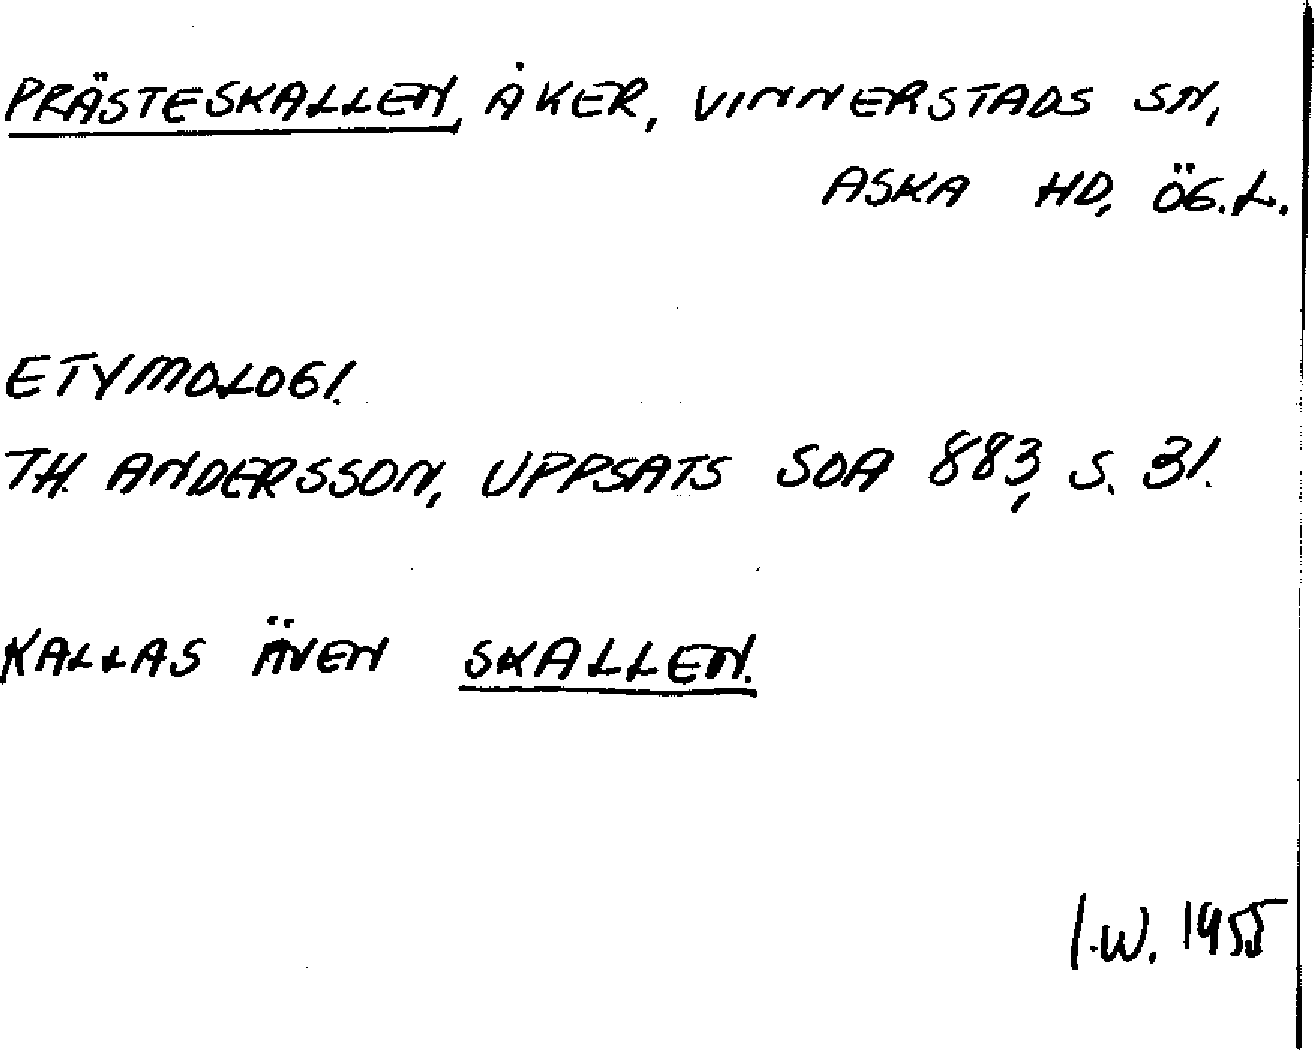 PRÄSTESKALLEN, ÅKER, VINNERSTADS SN,
ASKA HD, ÖG.L.
ETYMOLOGI.
TH. ANDERSSON, UPPSATS SOA 883, S. 31.
KALLAS ÄVEN SKALLEN.
I.W. 1955